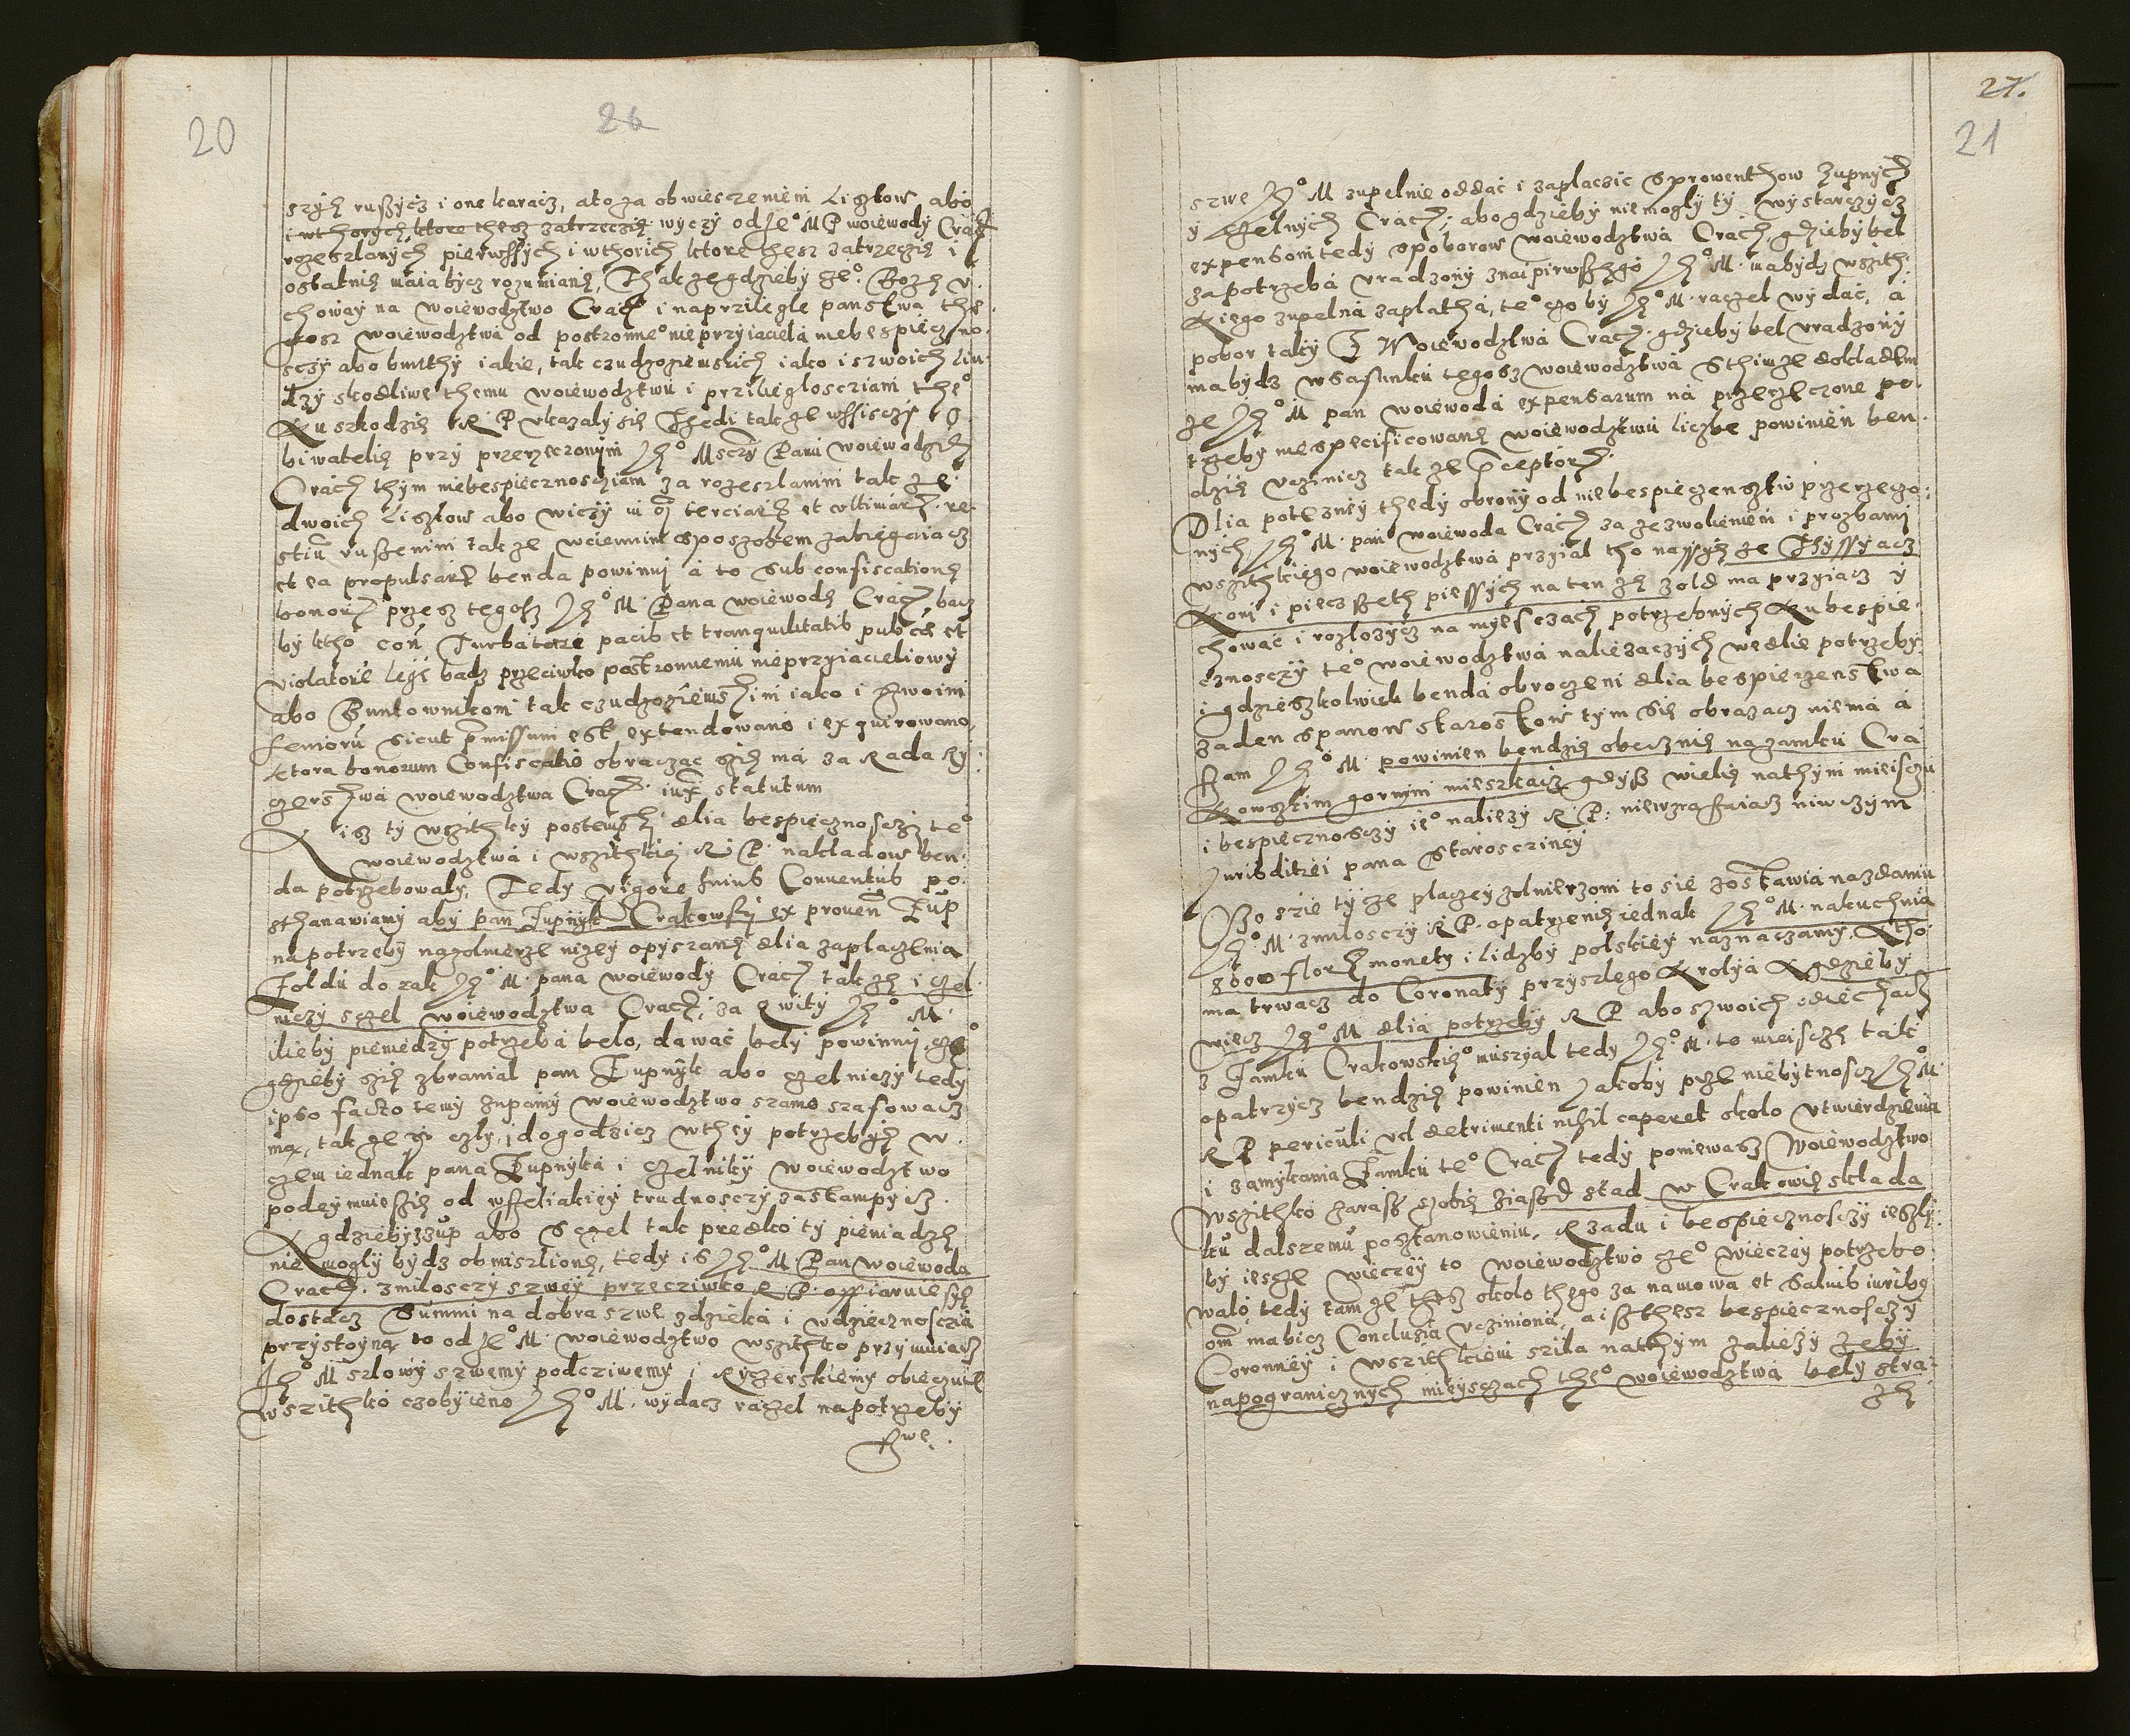 20
26
szych ruszycz i one karacz, ato za obwieszczeniem Listow abo
i wthorych ktore thesz zatrzeczich wyczy od Je° M P woiewody Crac
rozeslanych pierwssych i wthorich ktore thesz zatrzeczie i
ostatnie maia bycz rozumiane, Thak ze gdzieby ze° Bozeh v
choway na woiewodztwo Crac i na prziliegle panstwa the
gosz woiewodztwa od postronne° nieprzyiaciela niebespieczno
sczy abo bunthy iakie, tak czudzoziemskich iako i swoich liu
dzy skodliwe themu woiewodztwu i przilieglosciam the°
ku szkodzie R P vkazaly sie Thedi takze wssisczy o
biwatelie przy przerzeczonym Je° Msczy Panu woiewodzie
Crac thym niebespiecznosciam za rozeslanim tak ze
dwoich Listow abo wiczy in terciarum et vltimarum re
stium ruszenim takze woiennim sposobem zabiegaiacz
et ea propulsare benda powinni a to sub confiscatione
bonorum przesz tegosz Je° M Pana woiewode Crac, bacz
by ktho contra Turbatore pacis et tranquilitatis publice et
violatore legis badz przeciwko postronnemu nieprzyiacieliowy
abo Buntownikom tak czudzoziemskim iako i swoim
seniorum sicut premissum est extendowano i exquirowano
ktora bonorum Confiscatio obraczac szie ma za Rada Ry
czerstwa woiewodztwa Crac iuxta statutum
A isz ty wszithky postempki dlia bespiecznosczy te°
woiewodztwa i wszithkiej R P nakladow ben
da potrzebowaly, Tedy vigore huius Conuentus po
sthanawiamy aby pan Zupnyk Crakowsky ex prouen Zup
na potrzeby nazolnierze nizey opyszane dlia zaplaczenia
Zoldu do rak Je° M pana woiewody Crac takze i czel
niczy sczel woiewodztwa Crac, za qwity Je° M
ilieby pieniedzy potrzeba belo, dawac bely powinny, cze°
gdzieby szie zbranial pan Zupnyk abo czelniczy tedy
ipso facto temy zupamy woiewodztwo szamo szafowacz
ma, takze y czly, i dogodzicz wthey potrzebych w
czem iednak pana Zupnyka i czelniky woiewodztwo
podeymuie szie od wsseliakiey trudnosczy zastampycz
A gdzieby z zup abo sczel tak predko ty pieniadze
nie mogly bydz obmislione, tedy is Je° M Pan woiewoda
Crac z milosczy szwey przecziwko R P offiaruie sze
dostacz Summi na dobra szwe z dzieka i wdziecznoscia
przystoyna to od Je° M woiewodztwo wszithko przymuiacz
Je° M szlowy szwemy podcziwemy i Ryczerskiemy obieczuie
wszithko czobyieno Je° M wydacz raczel na potrzeby
szwe
27.
21
szwe Je° M zupelnie oddac i zaplaczic s prowenthow zupnych
y czelnych Crac; abo gdzieby nie mogly ty wystarczycz
expensom tedy s poborow woiewodztwa Crac gdzieby bel
za potrzeba vradzony z nai pirwszego Je° M ma bydz wszith
kiego zupelna zaplatha, te° czo by Je° M raczel wydac, a
pobor taky Z Woiewodztwa Crac gdzieby bel vradzony
ma bydz w szafunku tegosz woiewodztwa S thimze dokladem
ze Je° M pan woiewoda expensarum na przerzeczone po
trzeby niespecificowane woiewodztwu liczbe powinien ben
dzie vczinicz takze perceptorum
Dlia potezney thedy obrony od niebespieczenstw przerzeczo
nych, Je° M pan woiewoda Crac za zezwolieniem i prozbamy
wszithkiego woiewodztwa przyial tho na ssie ze Thyssyacz
koni i piecz szeth piessych na ten ze zold ma przyiacz y
chowac i rozlozycz na myesczach potrzebnych ku bespie
cznosczy te° woiewodztwa naliezaczych wedlie potrzeby
i gdzieszkolwiek benda obroczeni dlia bespieczenstwa
zaden s panow starostow tym sie obrazacz nie ma a
szam Je° M powinien bendzie obecznie na zamku Cra
kowszkim gornym mieszkacz gdysz wielie nathym mieisczu
i bespiecznosczy ie° naliezy R P: niewzrasszaiacz niwczym
Jurisditiei pana Staroscziney
Wo szie tycze placzey zolnierzom to sie zostawia na zdaniu
Je° M z milosczy R P opatrzenie iednak Je° M na kuchnia
8000 florenorum monety i lidzby polskiey naznaczamy, ktho
ma trwacz do Coronaty przyszlego krolya A gdzieby
wiecz Je° M dlia potrzeby R P abo szwoich odiechacz
z Zamku Crakowskie° musyal tedy Je° M to mieiscze tak
opatrzycz bendzie powinien Jakoby prze niebytnoscz Je° M
R P periculi vel detrimenti nihil caperet okolo vtwierdzenia
i zamykania Zamku te° Crac tedy poniewasz Woiewodztwo
wszithko zarasz szobie ziasd stad w Crakowie sklada
ku dalszemu posztanowieniu, Rzadu i bespiecznosczy iesly
by iesze wieczey to woiewodztwo cze° wieczey potrzebo
walo tedy tam ze thesz okolo thego za namowa et Saluis iuribus
omnium ma bicz Conclusia vcziniona, a isz thesz bespiecznosczy
Coronney i wszithkiem szila nathym zaliezy zeby
na pogranicznych mieysczach the° woiewodztwa bely stra
ze